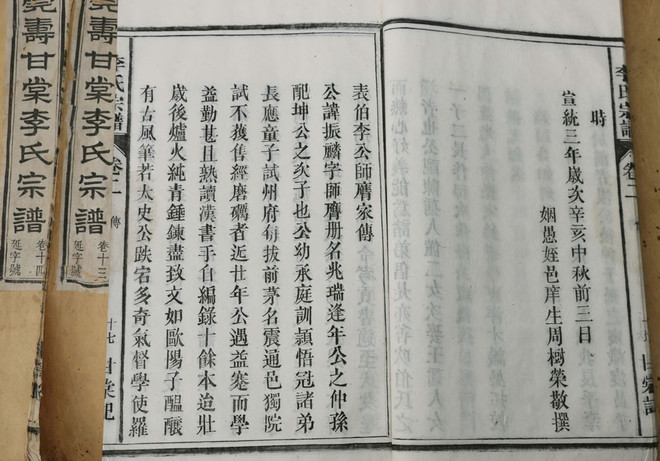 李氏宗譜 卷二 甘棠記
時
宣統三年歲次辛亥中秋前三日
姻愚姪邑庠生周樹榮敬撰
表伯李公師膺家傳
公諱振麟字師膺冊名兆瑞逢年公之仲孫
配坤公之次子也公幼承庭訓穎悟冠諸弟
長應童子試州府每拔前茅名震通邑獨院
試不獲售經磨礪者近世年公遇益蹇而學
益勤甚且熟讀漢書手自編錄十餘本迨壯
歲後爐火純青錘鍊盡致文如歐陽子醞釀
有古風筆若太史公跌宕多奇氣督學使羅
李氏宗譜 卷二 傳 十七 甘棠記
壽甘棠李氏宗譜 卷十三 延字號
堯壽甘棠李氏宗譜 卷十四 延字號